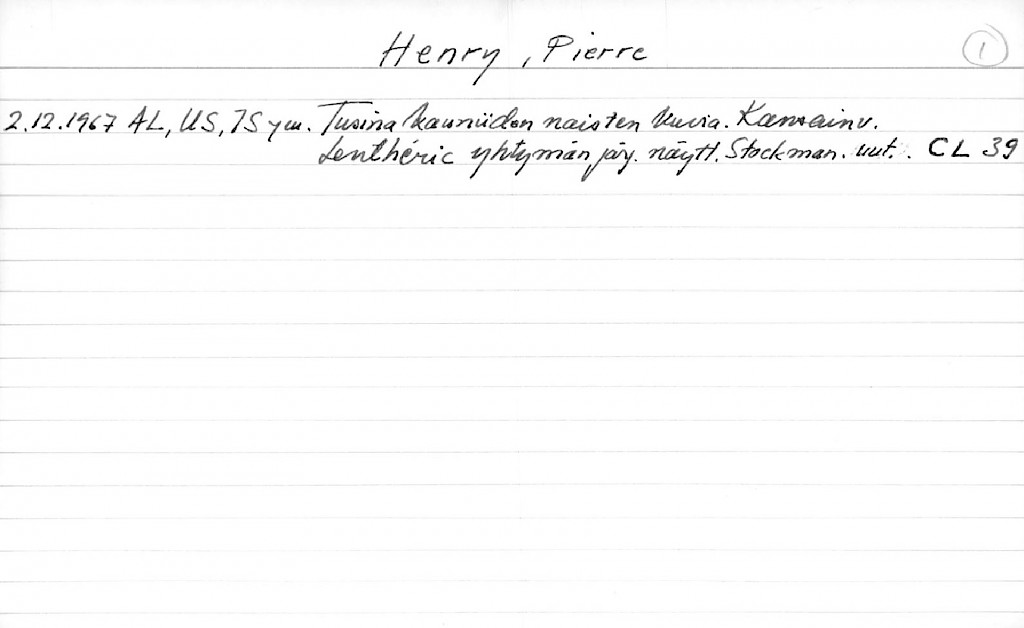 Henry, Pierre
1
2.12.1967 AL, US, IS ym. Tusina kauniiden naisten kuvia. Kansainv.
Lenthéric yhtymän järj. näytt. Stockman. uut. CL 39